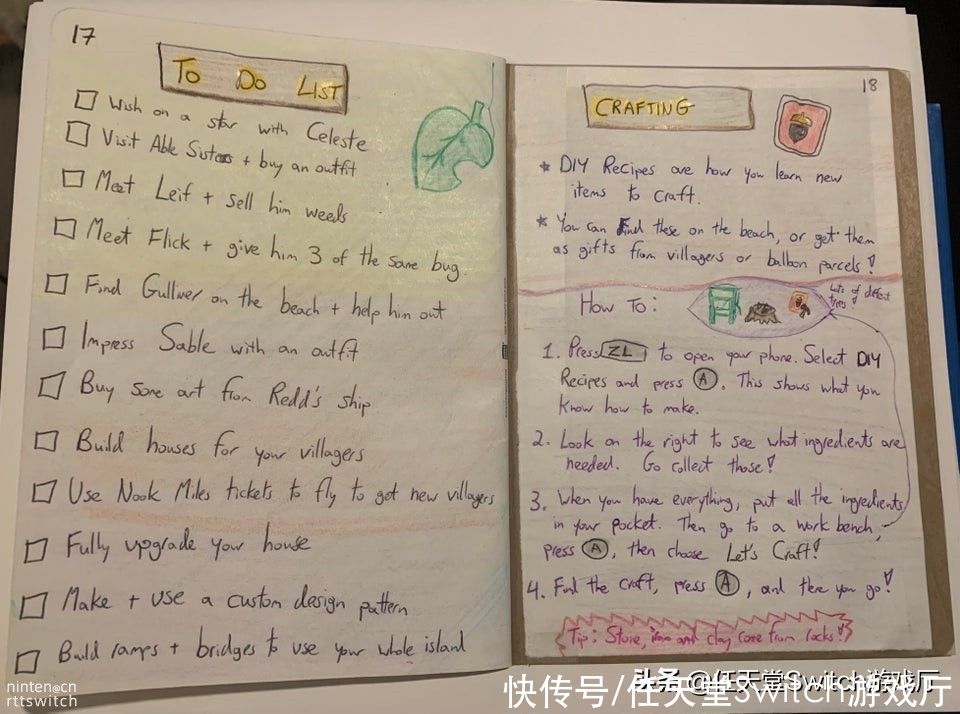 17
TO DO LIST
Wish on a star with Celeste
Visit Able Sisters + buy an outfit
Meet Leif + sell him weeds
Meet Flick + give him 3 of the same bug
Find Gulliver on the beach + help him out
Impress Sable with an outfit
Buy some art from Redd's ship
Build houses for your villagers
Use Nook Miles tickets to fly to get new villagers
Fully upgrade your house
Make + use a custom design pattern
Build ramps + bridges to use your whole island
18
CRAFTING
★ DIY Recipes are how you learn new
items to craft.
★ You can find these on the beach, or get them
as gifts from villagers or balloon parcels!
How To:
Lots of different
types!
1. Press ZL to open your phone. Select DIY
Recipes and press A. This shows what you
know how to make.
2. Look on the right to see what ingredients are
needed. Go collect those!
3. When you have everything, put all the ingredients
in your pocket. Then go to a work bench,
press A, then choose Let's Craft!
4. Find the craft, press A, and there you go!
Tip: Stone, iron and clay come from rocks!
ninten@cn
rttswitch
头条@任天堂Switch游戏厅
快传号/任天堂Switch游戏厅